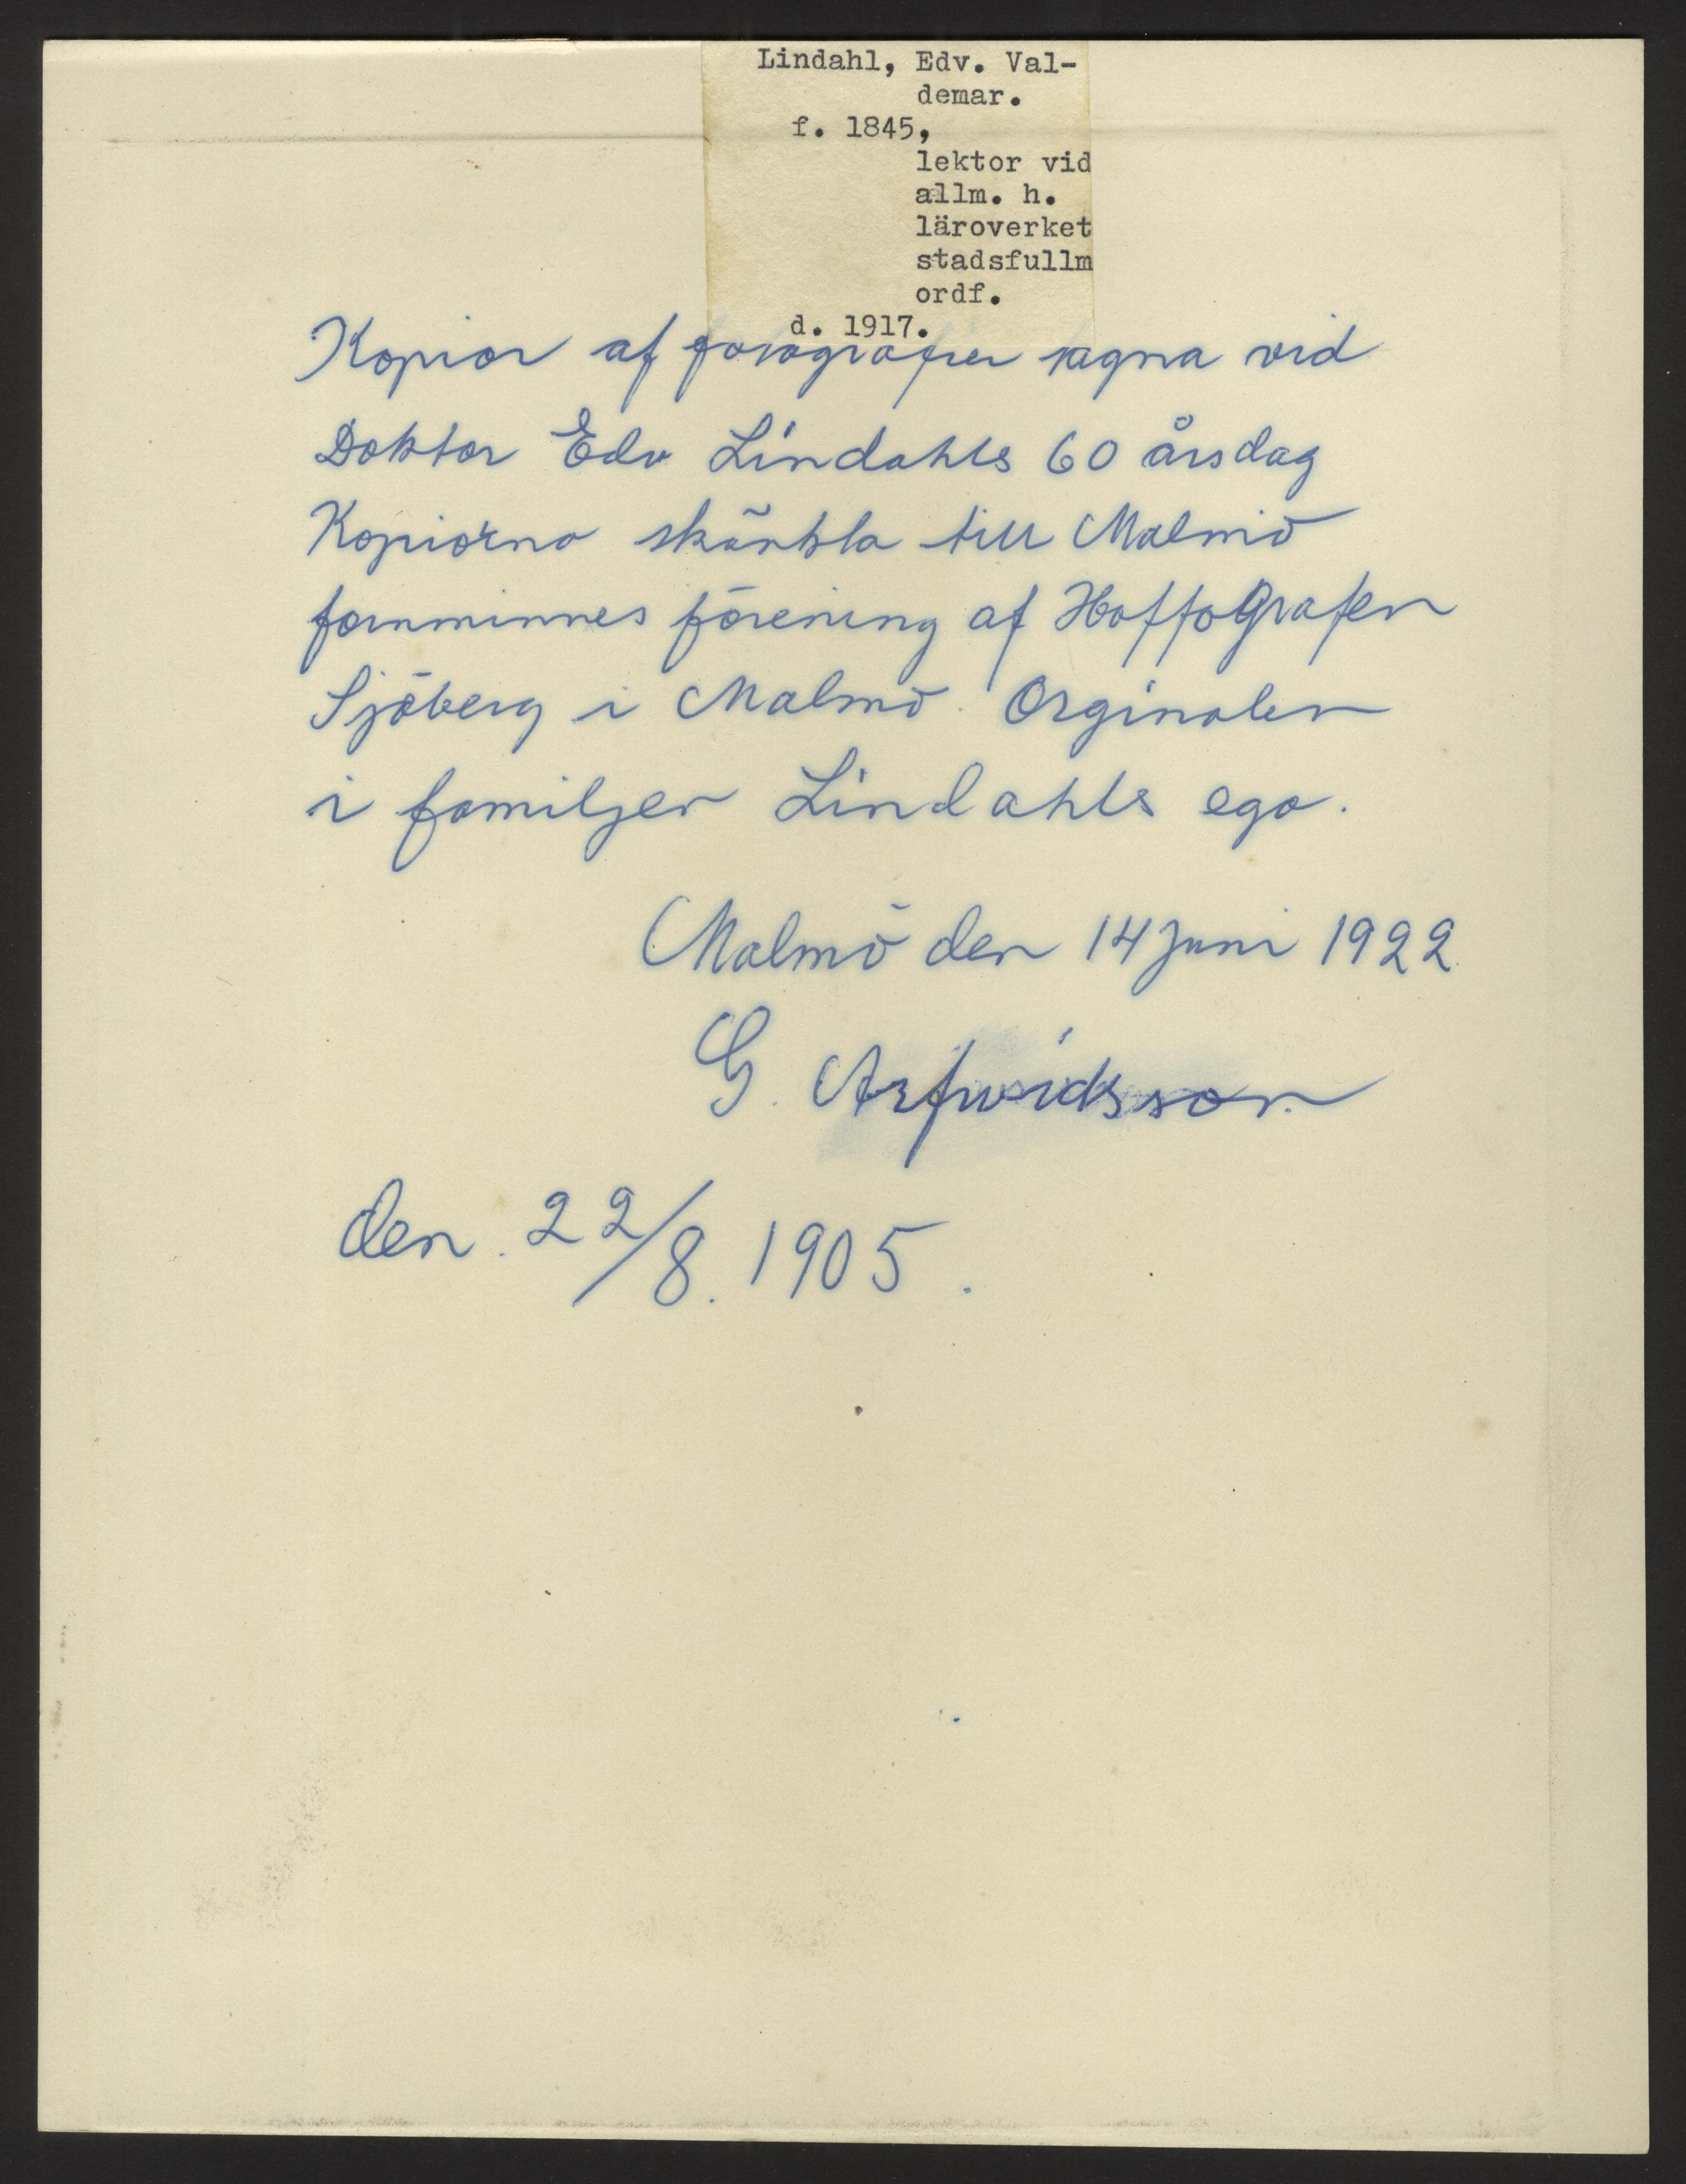 Lindahl, Edv. Val-
demar.
f. 1845,
lektor vid
allm. h.
läroverket
stadsfullm
ordf.
d. 1917.
Kopior af fotografier tagna vid
Doktor Edv Lindahls 60 årsdag
Kopiorna skänkta till Malmö
fornminnes förening af Hoffografen
Sjöberg i Malmö. Orginalen
i familjen Lindahls ego.
Malmö den 14 Juni 1922
G. Arfwidsson.
den. 22/8. 1905.